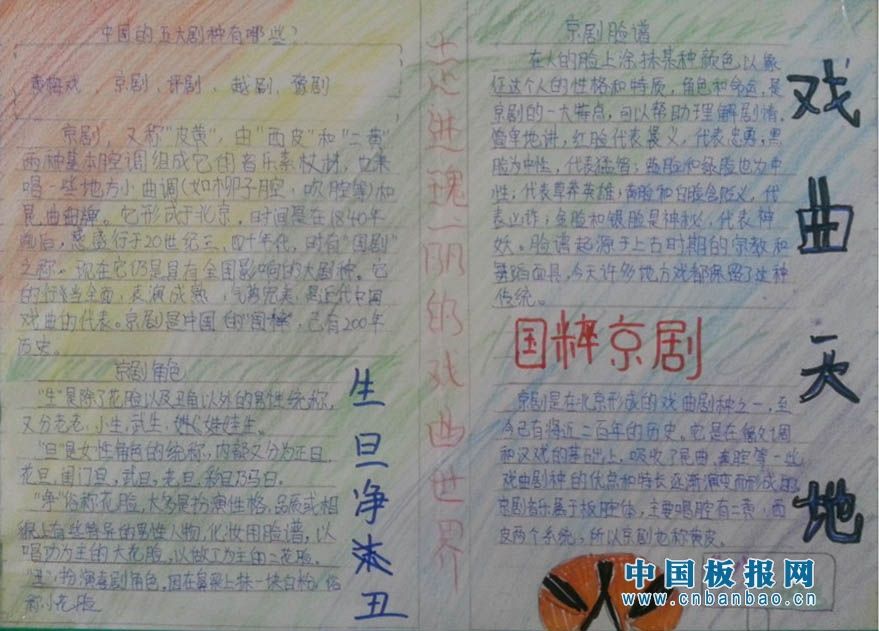 中国的五大剧种有哪些?
黄梅戏、京剧、评剧、越剧、豫剧
京剧,又称"皮黄",由"西皮"和"二黄"
两种基本腔调组成它的音乐素材,也兼
唱一些地方小曲调(如柳子腔,吹腔等)和
昆曲曲牌。它形成于北京,时间是在1840年
前后,盛行于20世纪三、四十年代,时有"国剧"
之称。现在它仍是具有全国影响的大剧种。它
的行当全面,表演成熟,气势宏美,是近代中国
戏曲的代表。京剧是中国的"国粹",已有200年
历史。
京剧角色
"生"是除了花脸以及丑角以外的男性统称,
又分老生,小生,武生,娃娃生。
"旦"是女性角色的统称,内部又分为正旦,
花旦,闺门旦,武旦,老旦,
"净"俗称花脸,大多是扮演性格,品质或相
貌上有些特异的男性人物,化妆用脸谱,以
唱功为主的大花脸,以做工为主的二花脸。
"丑",扮演喜剧角色,因在鼻梁上抹一块白粉,俗
称小花脸
生旦净末丑
走进瑰丽的戏曲世界
京剧脸谱
在人的脸上涂抹某种颜色以象
征这个人的性格和特质,角色和命运,是
京剧的一大特点,可以帮助理解剧情。
简单地讲,红脸代表褒义,代表忠勇;黑
脸为中性,代表猛智;蓝脸和绿脸也为中
性,代表草莽英雄;黄脸和白脸含贬义,代
表凶诈;金脸和银脸是神秘,代表神
妖。脸谱起源于上古时期的宗教和
舞蹈面具,今天许多地方戏都保留了这种
传统。
国粹京剧
京剧是在北京形成的戏曲剧种之一,至
今已有将近二百年的历史。它是在徽调
和汉戏的基础上,吸收了昆曲、秦腔等一些
戏曲剧种的优点和特长逐渐演变而形成的。
京剧音乐属于板腔体,主要唱腔有二黄,西
皮两个系统,所以京剧也称黄皮。
戏曲天地
中国板报网
www.cnbanbao.cn